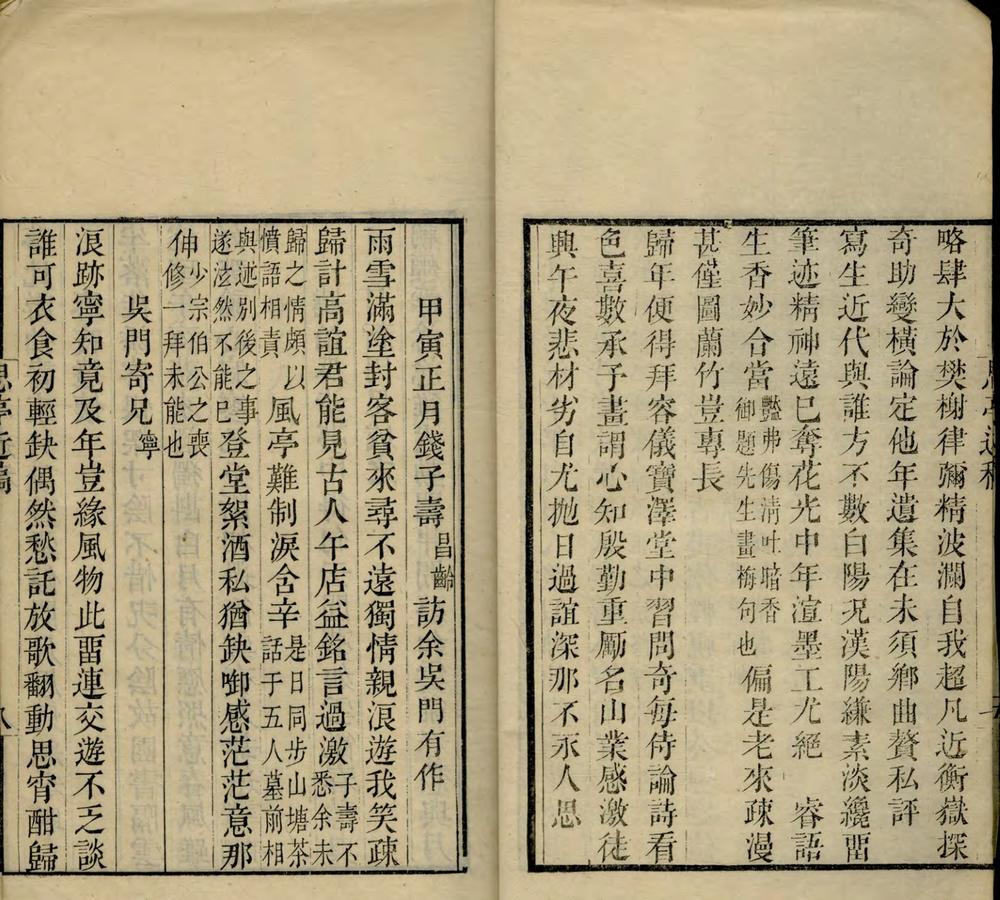 略肆大於樊榭律彌精波瀾自我超凡近衡嶽探
奇助變橫論定他年遺集在未須鄉曲贅私評
寫生近代與誰方不數白陽況漢陽縑素淡纔畱
筆迹精神遠巳奪花光中年渲墨工尤絕　睿語
生香妙合當豔弗傷淸吐暗香御題先生畫梅句也偏是老來疎漫
甚僅圖蘭竹豈專長
歸年便得拜容儀寶澤堂中習問奇每侍論詩看
色喜數承予畫謂心知殷勤重厲名山業感激徒
興午夜悲材劣自尤拋日過誼深那不永人思
甲寅正月錢子壽昌齡訪余吳門有作
雨雪滿塗封客貧來尋不遠獨情親浪遊我笑疎
歸計高誼君能見古人午店益銘言過激子壽不悉余未
歸之情頗以憤語相責風亭難制淚含辛是日同步山塘茶話于五人墓前相
與述別後之事遂泫然不能已登堂絮酒私猶缺啣感茫茫意那
伸少宗伯公之喪修一拜未能也
吳門寄兄寧
浪跡寧知竟及年豈緣風物此畱連交遊不乏談
誰可衣食初輕缺偶然愁託放歌翻動思宵酣歸
思亭近稿
八